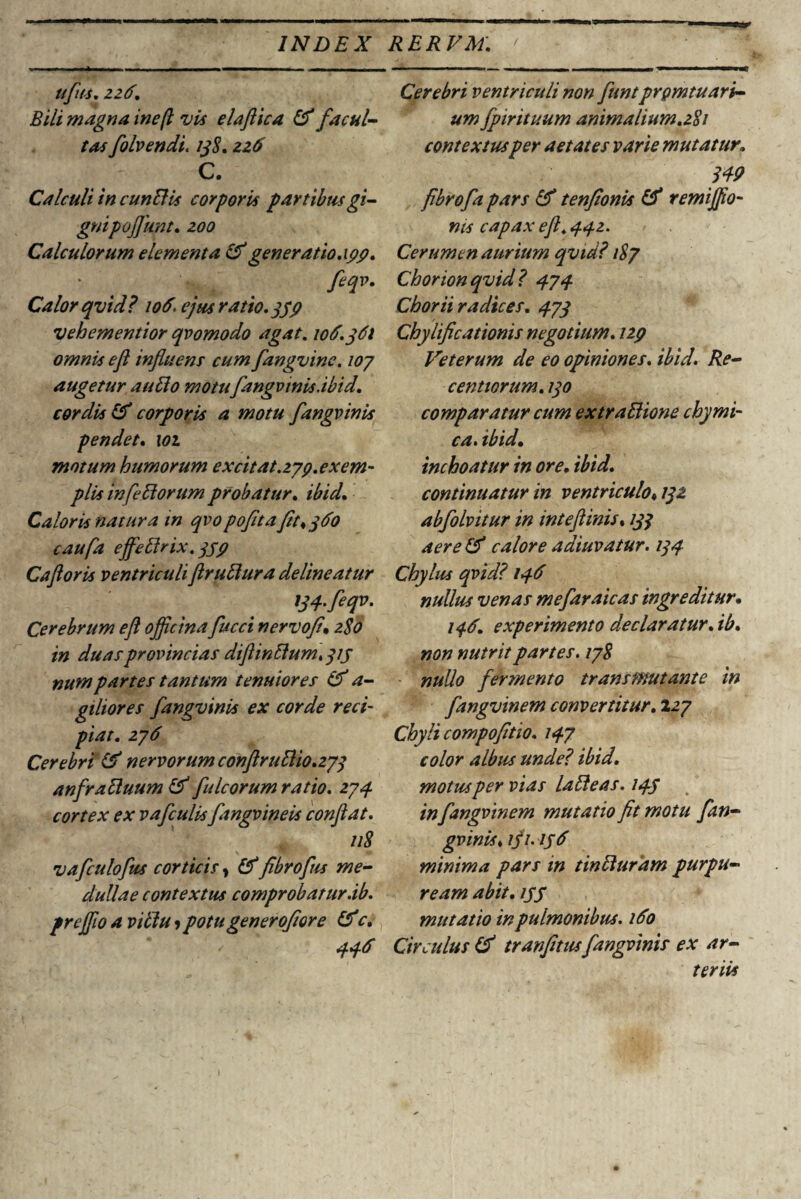 INDEX RERVM.
uſus. 226.
Bili magna ineſt vis elaſtica & facul-
tas ſolvendi. 138. 226
C.
Calculi in cunctis corporis partibus gi-
gni poſſunt. 200
Calculorum elementa & generatio. 199.
ſeqv.
Calor qvid? 106. ejus ratio. 359
vehementior qvomodo agat. 106. 361
omnis eſt influens cum ſangvine. 107
augetur aucto motu ſangvinis. ibid.
cordis & corporis a motu ſangvinis
pendet. 101
motum humorum excitat. 279. exem-
plis inſectorum probatur. ibid.
Caloris natura in qvo poſita ſit. 360
cauſa effectrix. 359
Caſtoris ventriculi ſtructura delineatur
134. ſeqv.
Cerebrum eſt officina ſucci nervoſi. 280
in duas provincias diſtinctum. 315
num partes tantum tenuiores & a-
giliores ſangvinis ex corde reci-
piat. 276
Cerebri & nervorum conſtructio. 273
anfractuum & ſulcorum ratio. 274
cortex ex vaſculis ſangvineis conſtat.
118
vaſculoſus corticis, & fibroſus me-
dullae contextus comprobatur. ib.
preſſio a victu, potu generoſiore &c.
446
Cerebri ventriculi non ſunt promtuari-
um ſpirituum animalium. 281
contextus per aetates varie mutatur.
349
fibroſa pars & tenſionis & remiſſio-
nis capax eſt. 442.
Cerumen aurium qvid? 187
Chorion qvid? 474
Chorii radices. 473
Chylificationis negotium. 129
Veterum de eo opiniones. ibid. Re-
centiorum. 130
comparatur cum extractione chymi-
ca. ibid.
inchoatur in ore. ibid.
continuatur in ventriculo. 132
abſolvitur in inteſtinis. 133
aere & calore adiuvatur. 134
Chylus qvid? 146
nullus venas meſaraicas ingreditur.
146. experimento declaratur. ib.
non nutrit partes. 178
nullo fermento transmutante in
ſangvinem convertitur. 127
Chyli compoſitio. 147
color albus unde? ibid.
motus per vias lacteas. 145
in ſangvinem mutatio fit motu ſan-
gvinis. 151. 156
minima pars in tincturam purpu-
ream abit. 155
mutatio in pulmonibus. 160
Circulus & tranſitus ſangvinis ex ar-
teriis